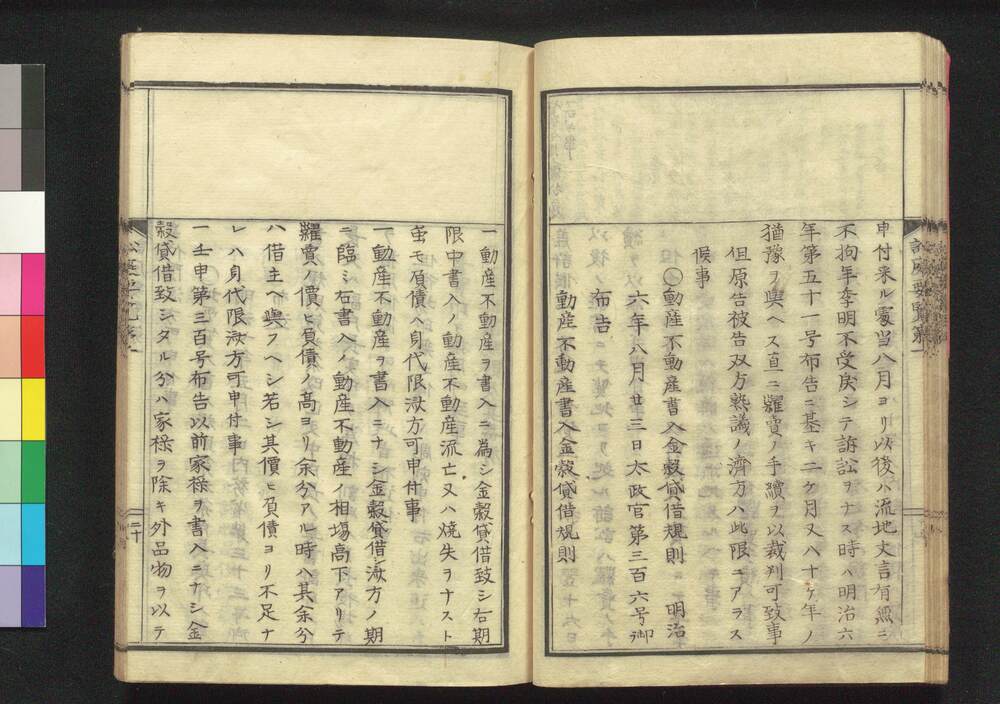 申付来ル處当八月ヨリ以後ハ流地文言有無ニ
不拘年季明不受戻シテ訴訟ヲナス時ハ明治六
年第五十一号布告ニ基キ二ケ月又ハ十ケ年ノ
猶豫ヲ與ヘス直ニ糶賣ノ手續ヲ以裁判可致事
但原告被告双方熟議ノ濟方ハ此限ニアラス
候事
動産不動産書入金穀貸借規則 明治
六年八月廿三日太政官第三百六号御
布告
動産不動産書入金穀貸借規則
一動産不動産ヲ書入ニ為シ金穀貸借致シ右期
限中書入ノ動産不動産流亡又ハ焼失ヲナスト
茧モ負債ヘ身代限済方可申付事
一動産不動産ヲ書入ニナシ金穀貸借シ済方ノ期
ニ臨ミ右書入ノ動産不動産ノ相場高下アリテ
糶賣ノ價ヒ負債ノ高ヨリ余分アル時ハ其余分
ハ借主ヘ與フヘシ若シ其價ヒ負債ヨリ不足ナ
レハ身代限済方可申付事
一壬申第三百号布告以前家禄ヲ書入ニナシ金
穀貸借致シタル分ハ家禄ヲ除キ外品物ヲ以テ
二十